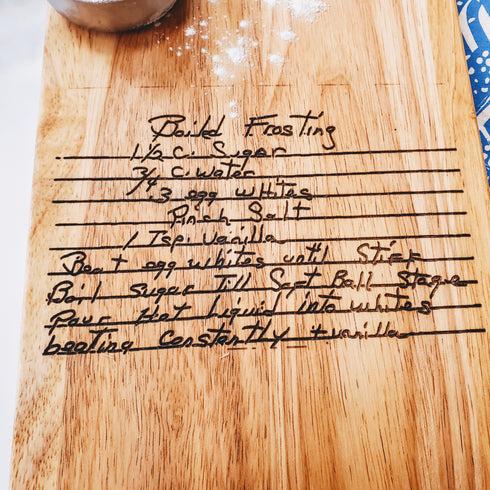 Boiled Frosting
1 1/2 c. Sugar
3/4 c. water
3 egg whites
Pinch Salt
1 Tsp. Vanilla
Beat egg whites until Stiff
Boil sugar Till Soft Ball Stage
Pour Hot Liquid into whites
beating Constantly + vanilla